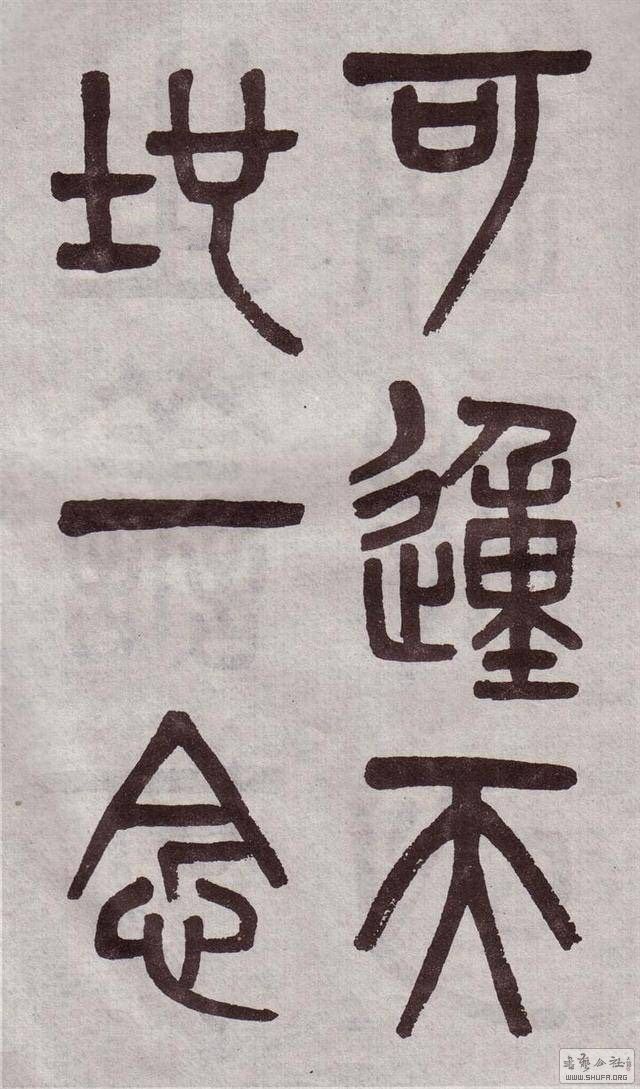 可動天
地一念
書藝公社
WWW.SHUFA.ORG